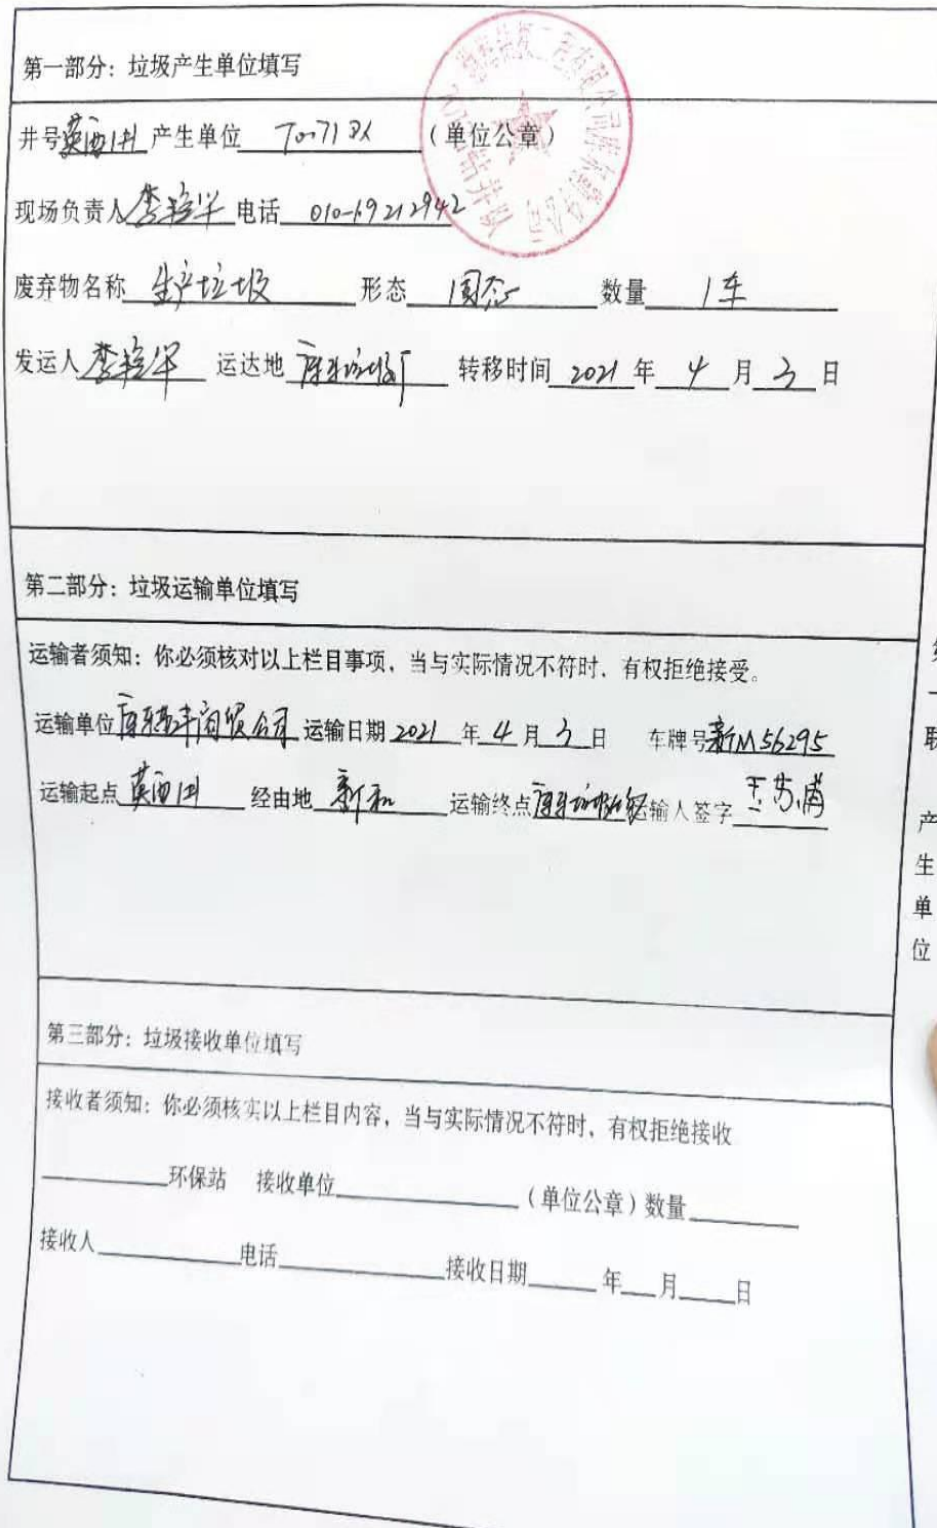 第一部分：垃圾产生单位填写
井号英西1井 产生单位 70071队 （单位公章）
现场负责人李 华 电话 010-69212942
废弃物名称 生产垃圾 形态 固态 数量 1车
发运人 李 华 运达地 库车垃圾厂 转移时间 2021 年 4 月 3 日
第二部分：垃圾运输单位填写
运输者须知：你必须核对以上栏目事项，当与实际情况不符时，有权拒绝接受。
运输单位 商贸公司 运输日期 2021 年 4 月 3 日 车牌号新M56295
运输起点 英西1井 经由地 新和 运输终点库车垃圾 运输人签字
第三部分：垃圾接收单位填写
接收者须知：你必须核实以上栏目内容，当与实际情况不符时，有权拒绝接收
环保站 接收单位 （单位公章）数量
接收人 电话 接收日期 年 月 日
联
产生单位